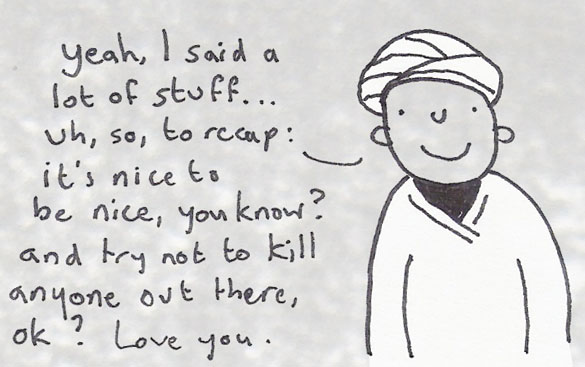 yeah, I said a
lot of stuff...
uh, so, to recap:
it's nice to
be nice, you know?
and try not to kill
anyone out there,
ok? Love you.